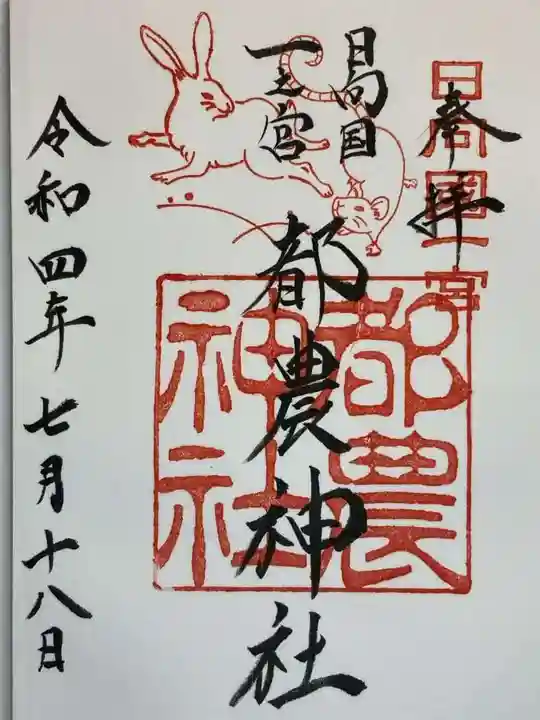 奉拝
日向國一宮
日向国
一之宮
都農神社
都農神社
令和四年七月十八日